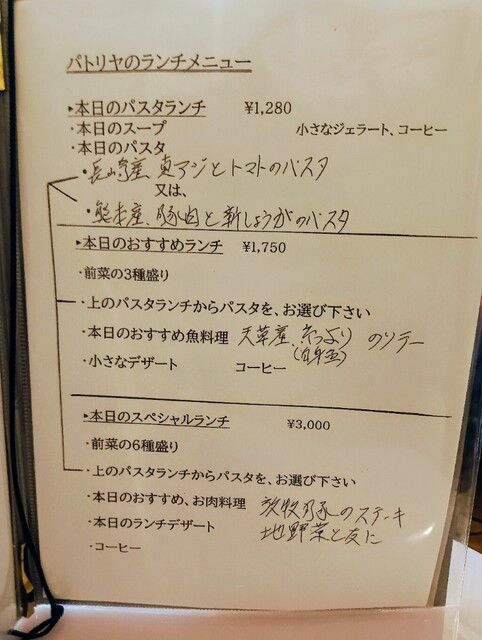 パトリヤのランチメニュー
▸本日のパスタランチ ¥1,280
・本日のスープ 小さなジェラート、コーヒー
・本日のパスタ
・長崎産 真アジとトマトのパスタ
又は、
・熊本産、豚肉と新しょうがのパスタ
▸本日のおすすめランチ ¥1,750
・前菜の3種盛り
・上のパスタランチからパスタを、お選び下さい
・本日のおすすめ魚料理 天草産、 のソテー
・小さなデザート コーヒー
▸本日のスペシャルランチ ¥3,000
・前菜の6種盛り
・上のパスタランチからパスタを、お選び下さい
・本日のおすすめ、お肉料理 放牧豚のステーキ
・本日のランチデザート 地野菜と友に
・コーヒー